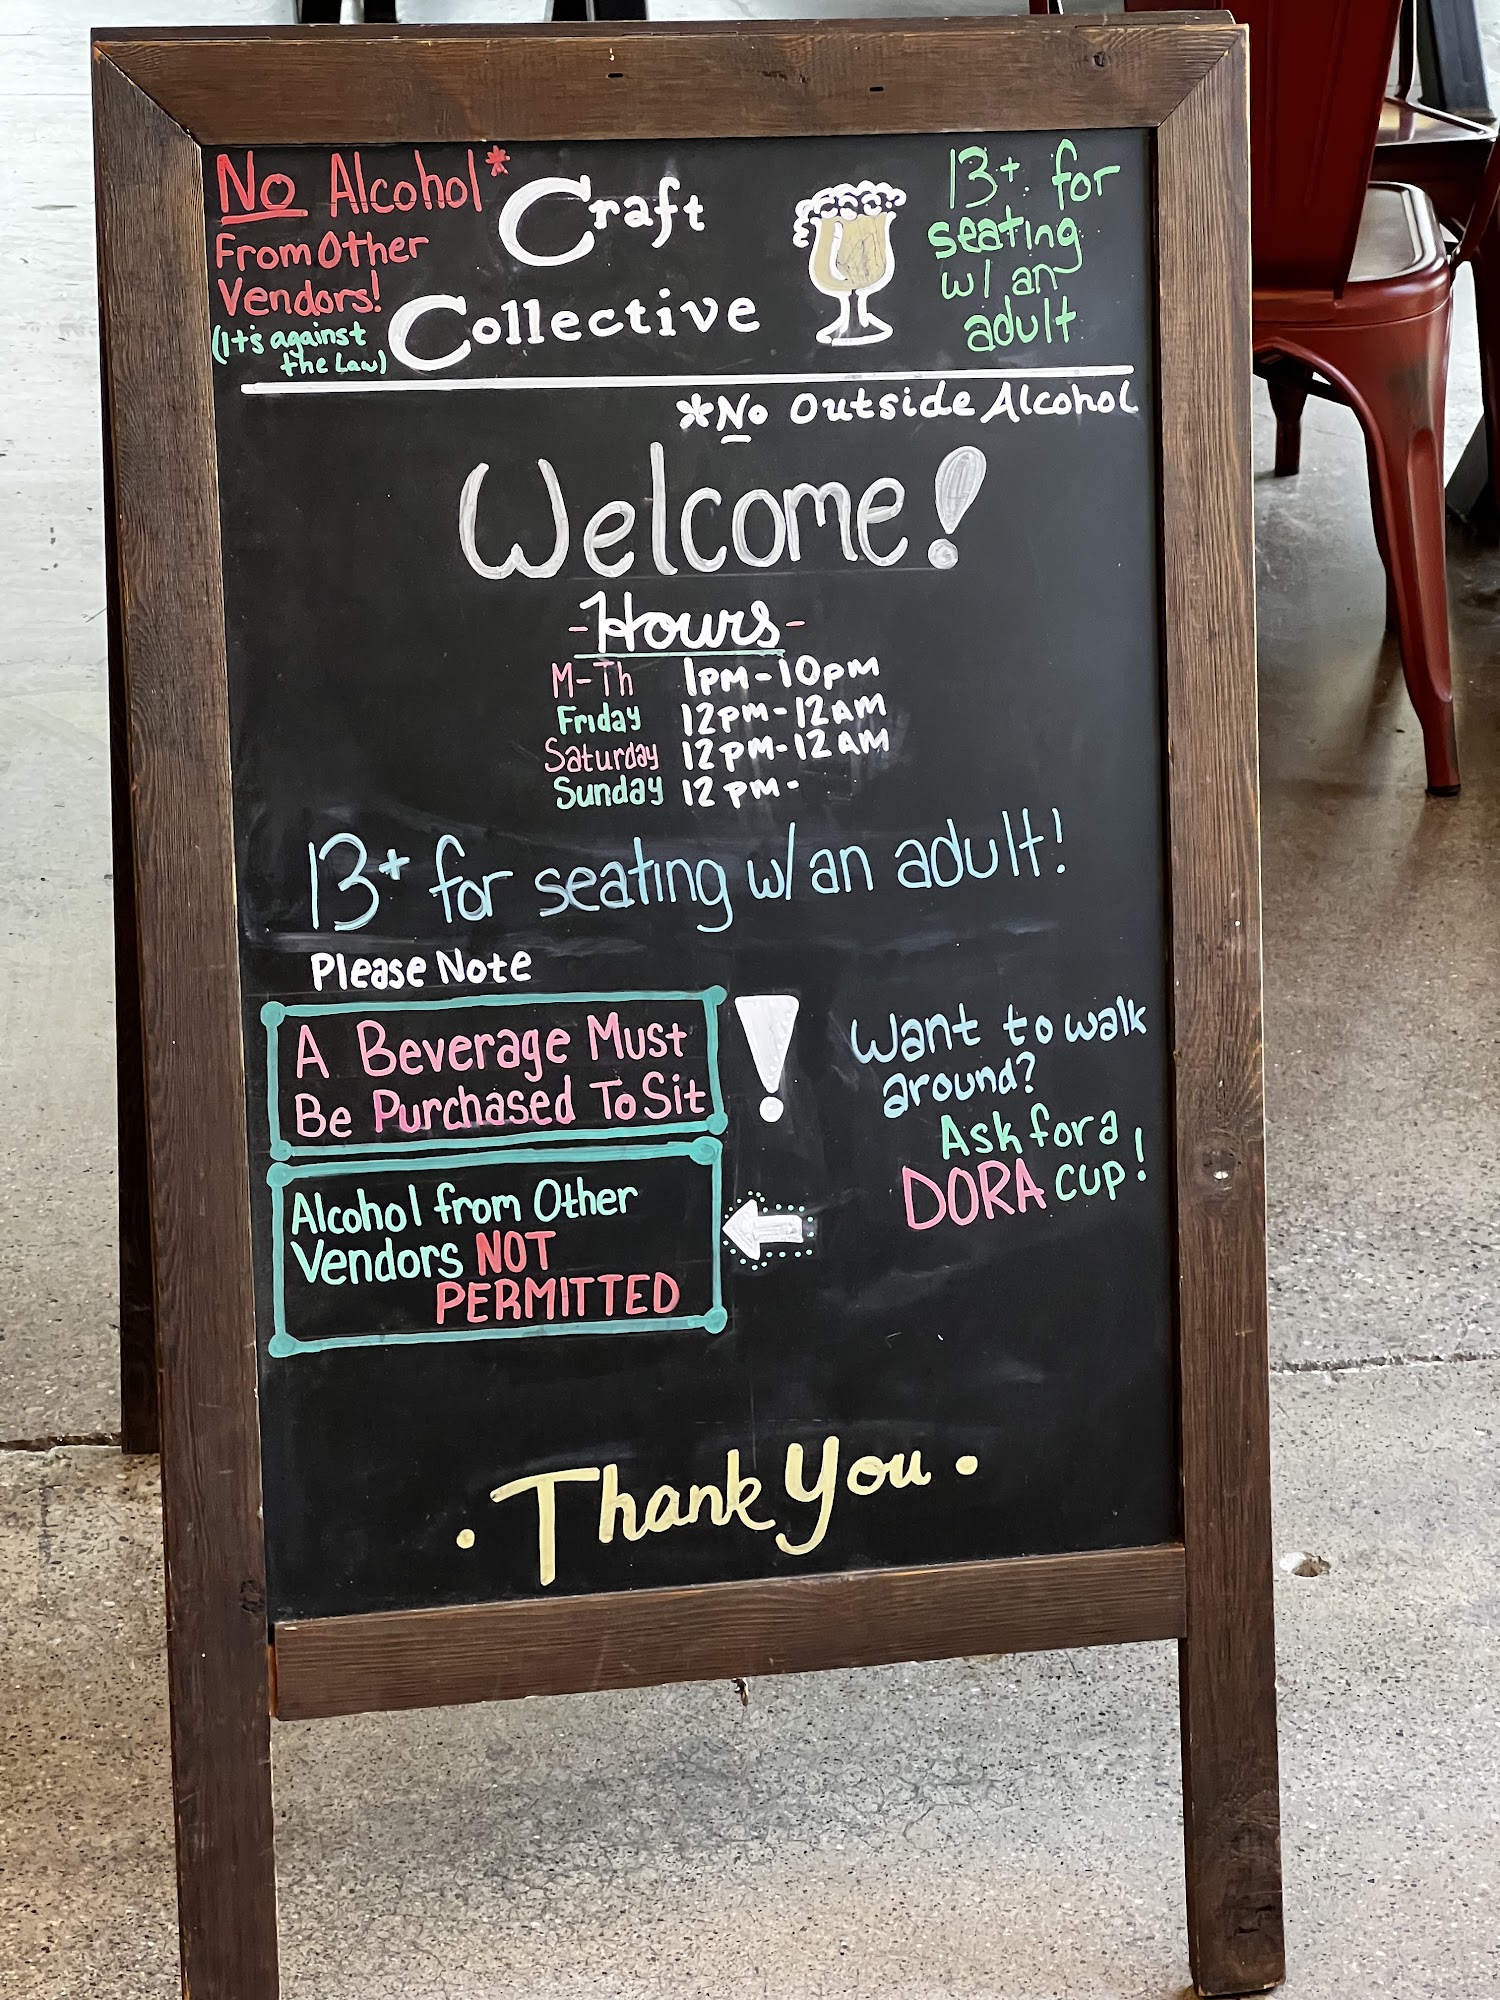 No Alcohol*
From Other
Vendors!
(It's against
the Law)
Craft
Collective
13+ for
seating
w/ an
adult
*No Outside Alcohol
Welcome!
-Hours-
M-Th 1pm-10pm
Friday 12pm-12am
Saturday 12pm-12am
Sunday 12pm-
13+ for seating w/an adult!
Please Note
A Beverage Must
Be Purchased To Sit
!
Alcohol from Other
Vendors NOT
PERMITTED
Want to walk
around?
Ask for a
DORA cup!
• Thank You •